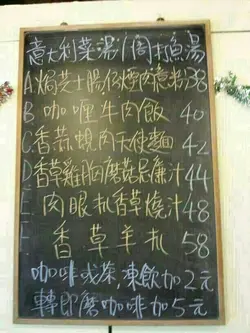 意大利菜湯/周打魚湯
A焗芝士腸仔煙肉意粉38
B 咖喱牛肉飯 40
C.香蒜蜆肉天使麵 42
D香草雞胸蘑菇忌廉汁44
E 肉眼扒香草燒汁48
F 香草羊扒 58
咖啡或茶,凍飲加2元
轉即磨咖啡加5元